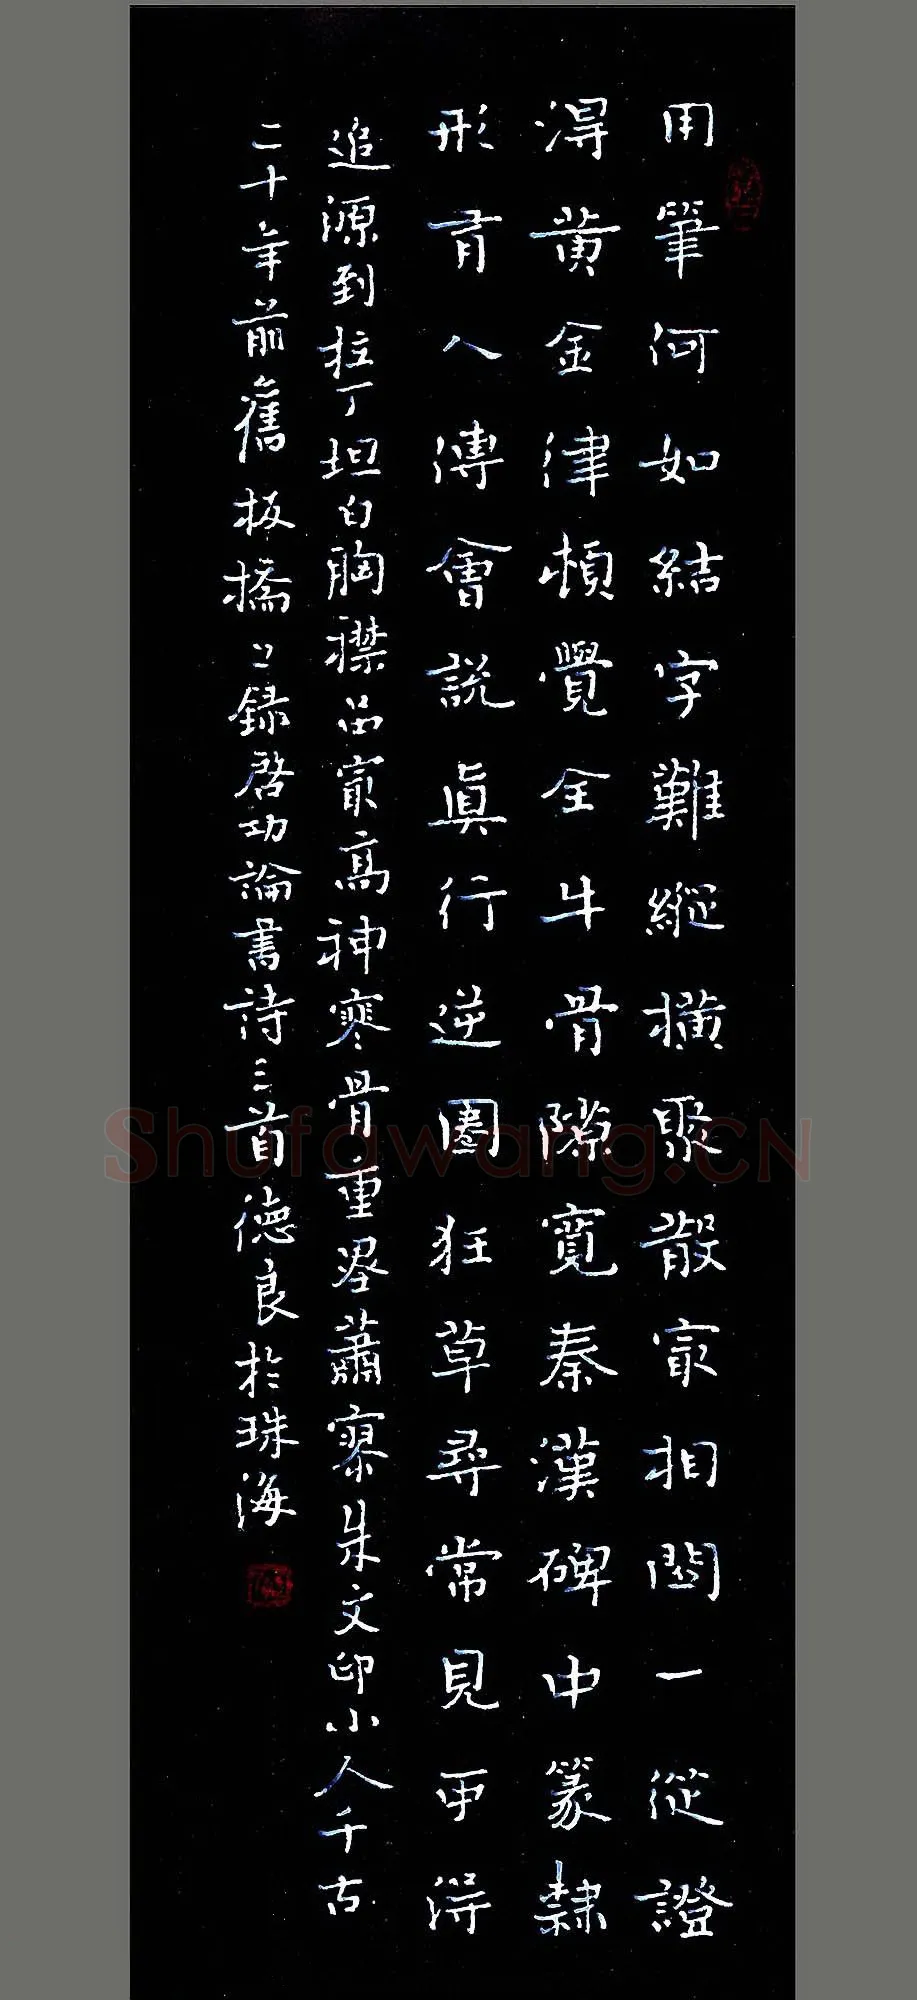 用筆何如結字難縱橫聚散冣相關一從證
淂黃金律頓覺全牛骨隙寬秦漢碑中篆隸
形有人傅會說眞行逆圈狂草尋常見可淂
追源到拉丁坦白胸襟品冣高神寒骨重墨蕭寥朱文印小人千古
二十年前舊板橋〻錄啓功論書詩三首德良於珠海
Shufawang.CN